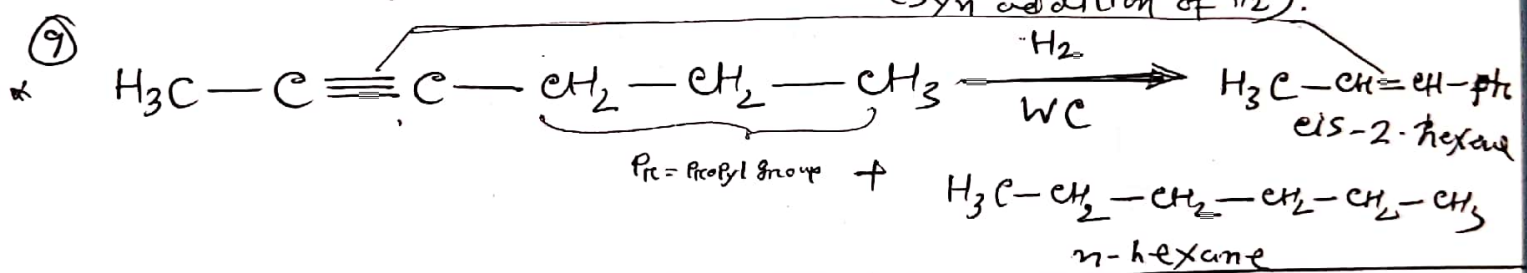 (syn addition of H2).
9
H3C — C ≡ C — CH2 — CH2 — CH3 H2 WC H3C — CH = CH — Pr
cis-2-hexene
Pr = Propyl group + H3C — CH2 — CH2 — CH2 — CH2 — CH3
n-hexane